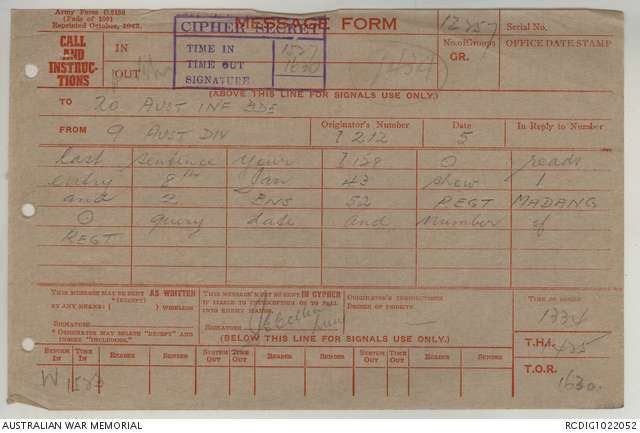 Army Form C.2128
(Pads of 100)
Reprinted October, 1942.
MESSAGE FORM
CIPHER SECRET
TIME IN 1527
TIME OUT 1630
SIGNATURE
CALL AND INSTRUCTIONS
IN
OUT
No. of Groups
GR.
Serial No.
OFFICE DATE STAMP
(ABOVE THIS LINE FOR SIGNALS USE ONLY.)
TO 20 AUST INF BDE
FROM 9 AUST DIV
Originator's Number
Date
In Reply to Number
I 212 5
last sentence your I 158 O reads
entry 8th Jan 43 shew 1
and 2 BNS 52 REGT MADANG
O query date and number of
REGT
THIS MESSAGE MAY BE SENT AS WRITTEN
(*EXCEPT)
BY ANY MEANS ( ) WIRELESS
SIGNATURE
* ORIGINATOR MAY DELETE "EXCEPT" AND
INSERT "INCLUDING."
THIS MESSAGE MUST BE SENT IN CYPHER
IF LIABLE TO INTERCEPTION OR TO FALL
INTO ENEMY HANDS.
SIGNATURE
ORIGINATOR'S INSTRUCTIONS
DEGREE OF PRIORITY
TIME OF ORIGIN
1334
(BELOW THIS LINE FOR SIGNALS USE ONLY.)
T.H.I. 425
SYSTEM IN TIME IN READER SENDER SYSTEM OUT TIME OUT READER SENDER SYSTEM OUT TIME OUT READER SENDER
T.O.R.
W 1523
1630
AUSTRALIAN WAR MEMORIAL
RCDIG1022052